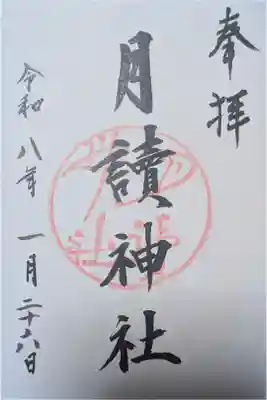 奉拝
月讀神社
令和八年一月二十六日